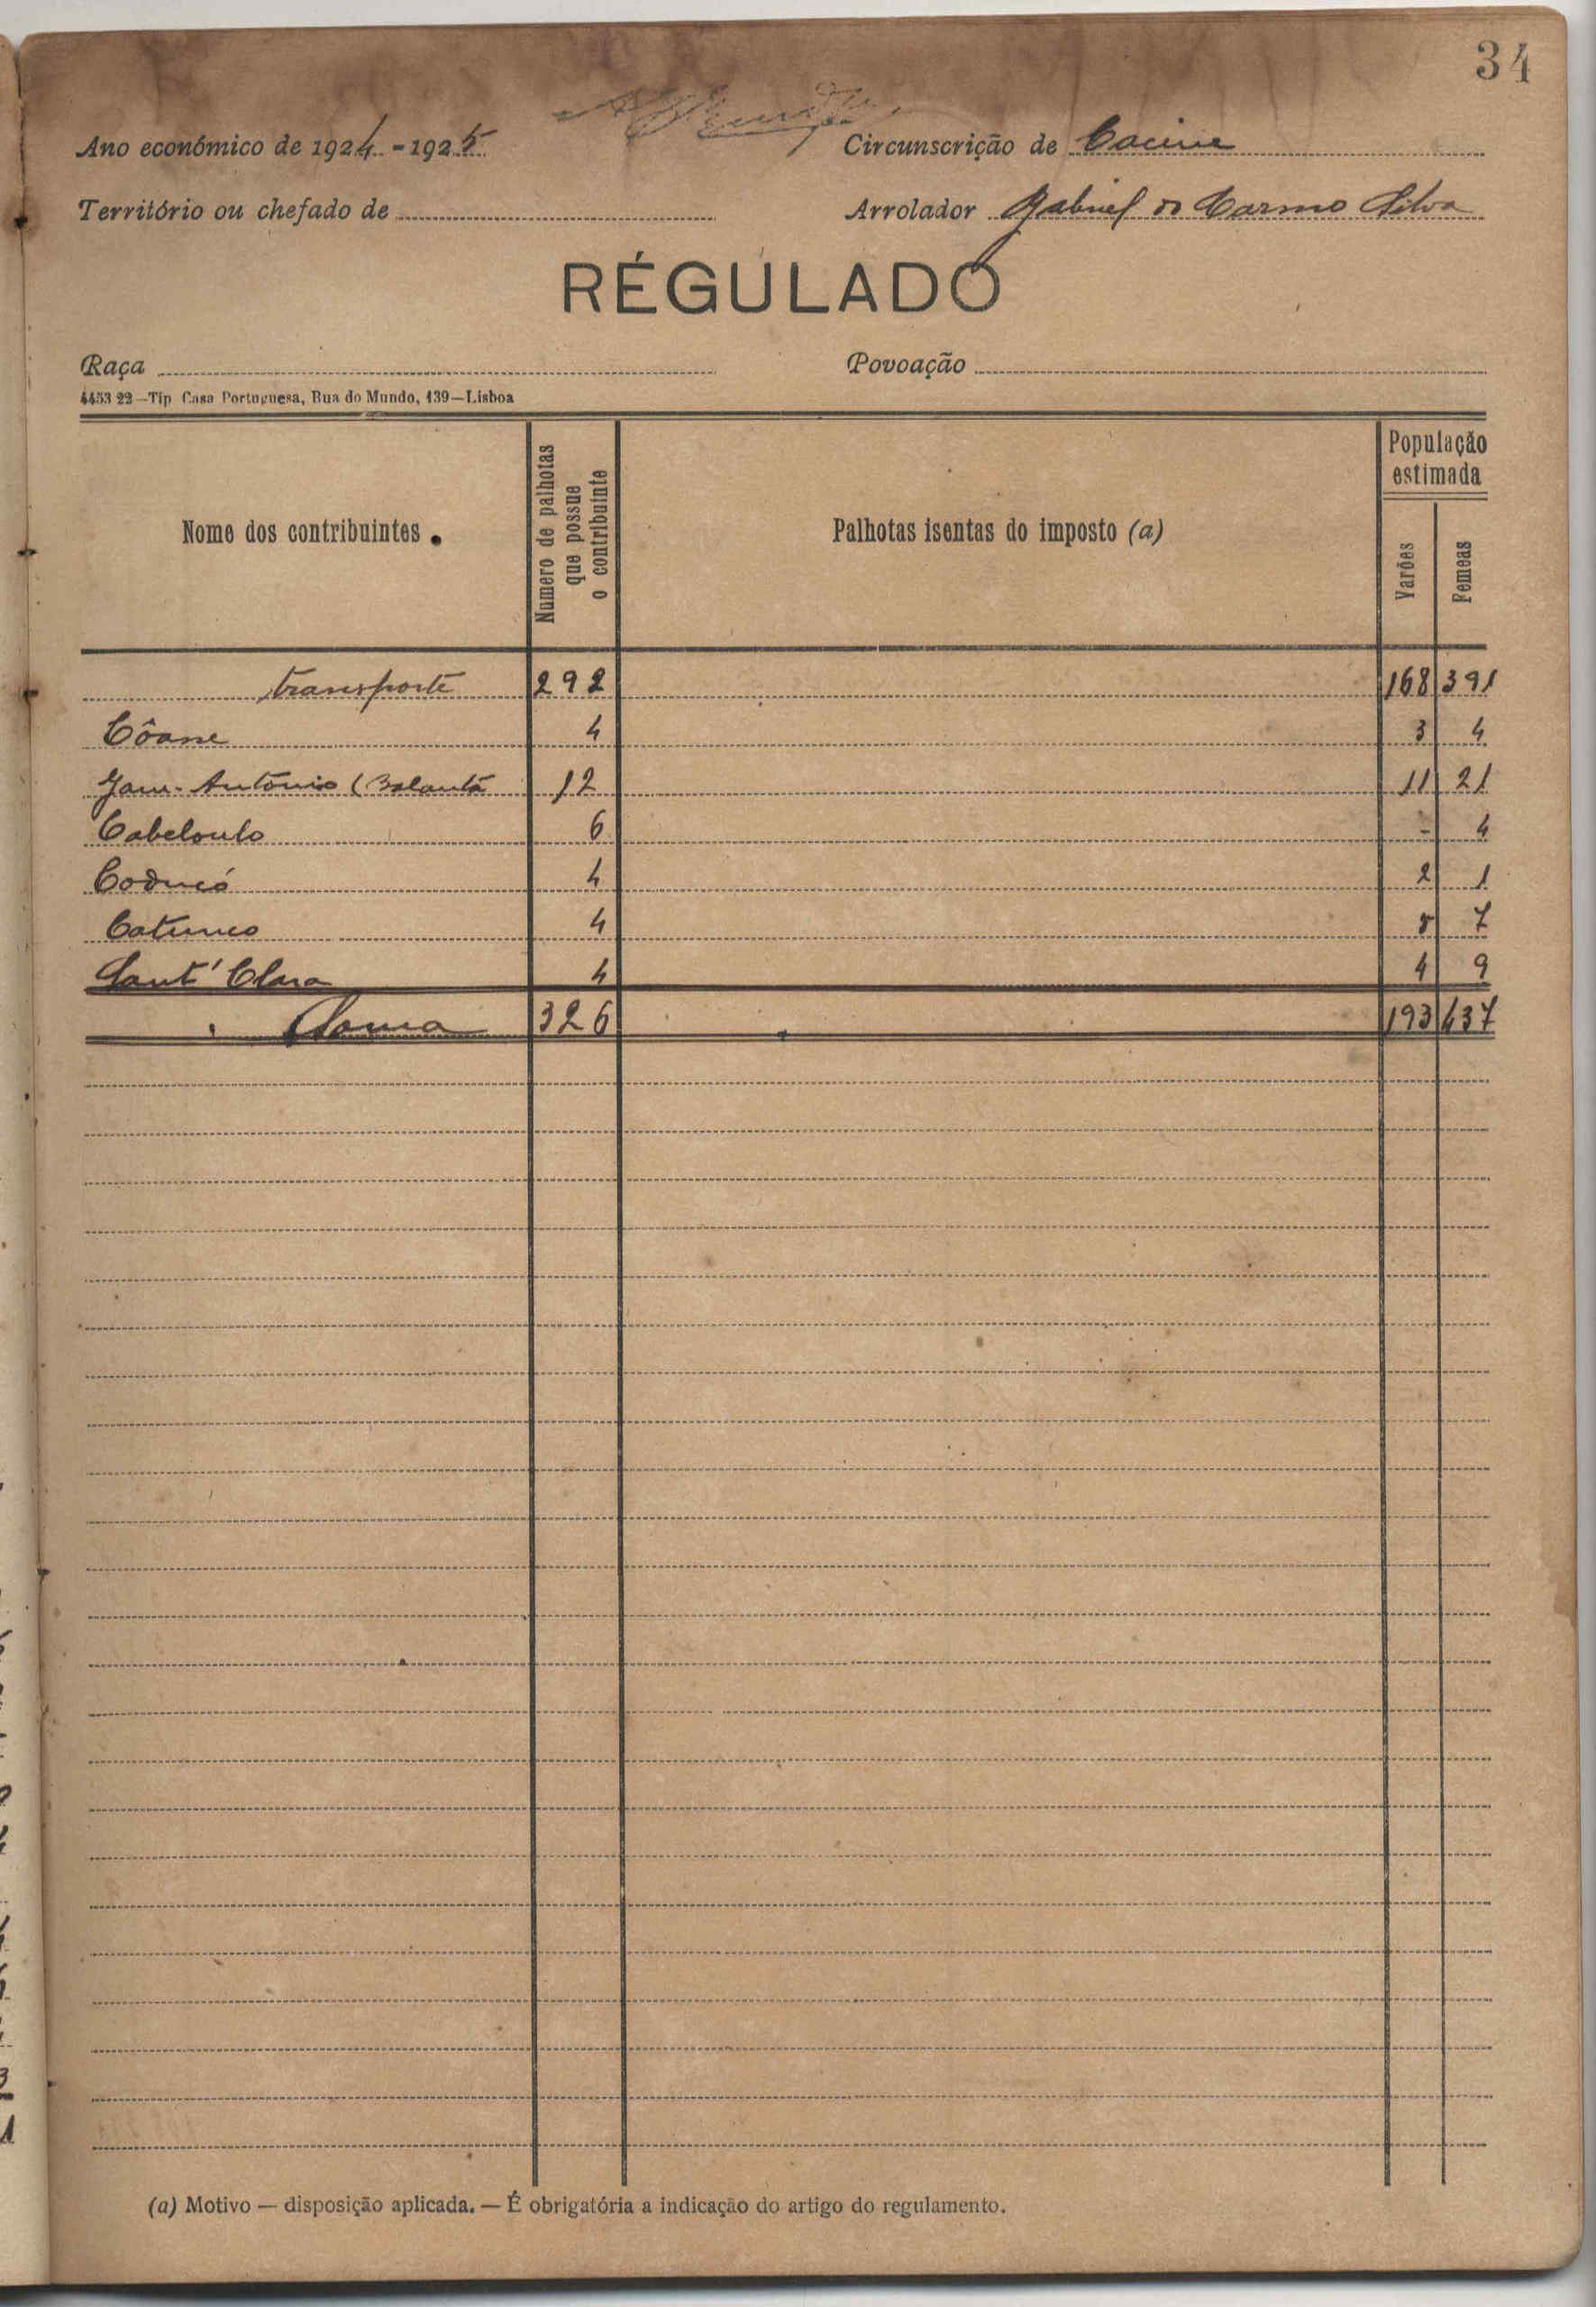 34
Ano económico de 1924-1925 Circunscrição de Cacine
Território ou chefado de Arrolador Gabriel do Carmo Silva
RÉGULADO
Raça Povoação
4453 22—Tip Casa Portuguesa, Rua do Mundo, 139—Lisboa
Nome dos contribuintes Numero de palhotas que possue o contribuinte Palhotas isentas do imposto (a) População estimada Varões Femeas
Transporte 292 168 391
Côane 4 3 4
António (Balanta 12 11 21
6 - 4
4 2 1
Catunco 4 7
Sant' Clara 4 4 9
Soma 326 193 437
(a) Motivo — disposição aplicada. — É obrigatória a indicação do artigo do regulamento.